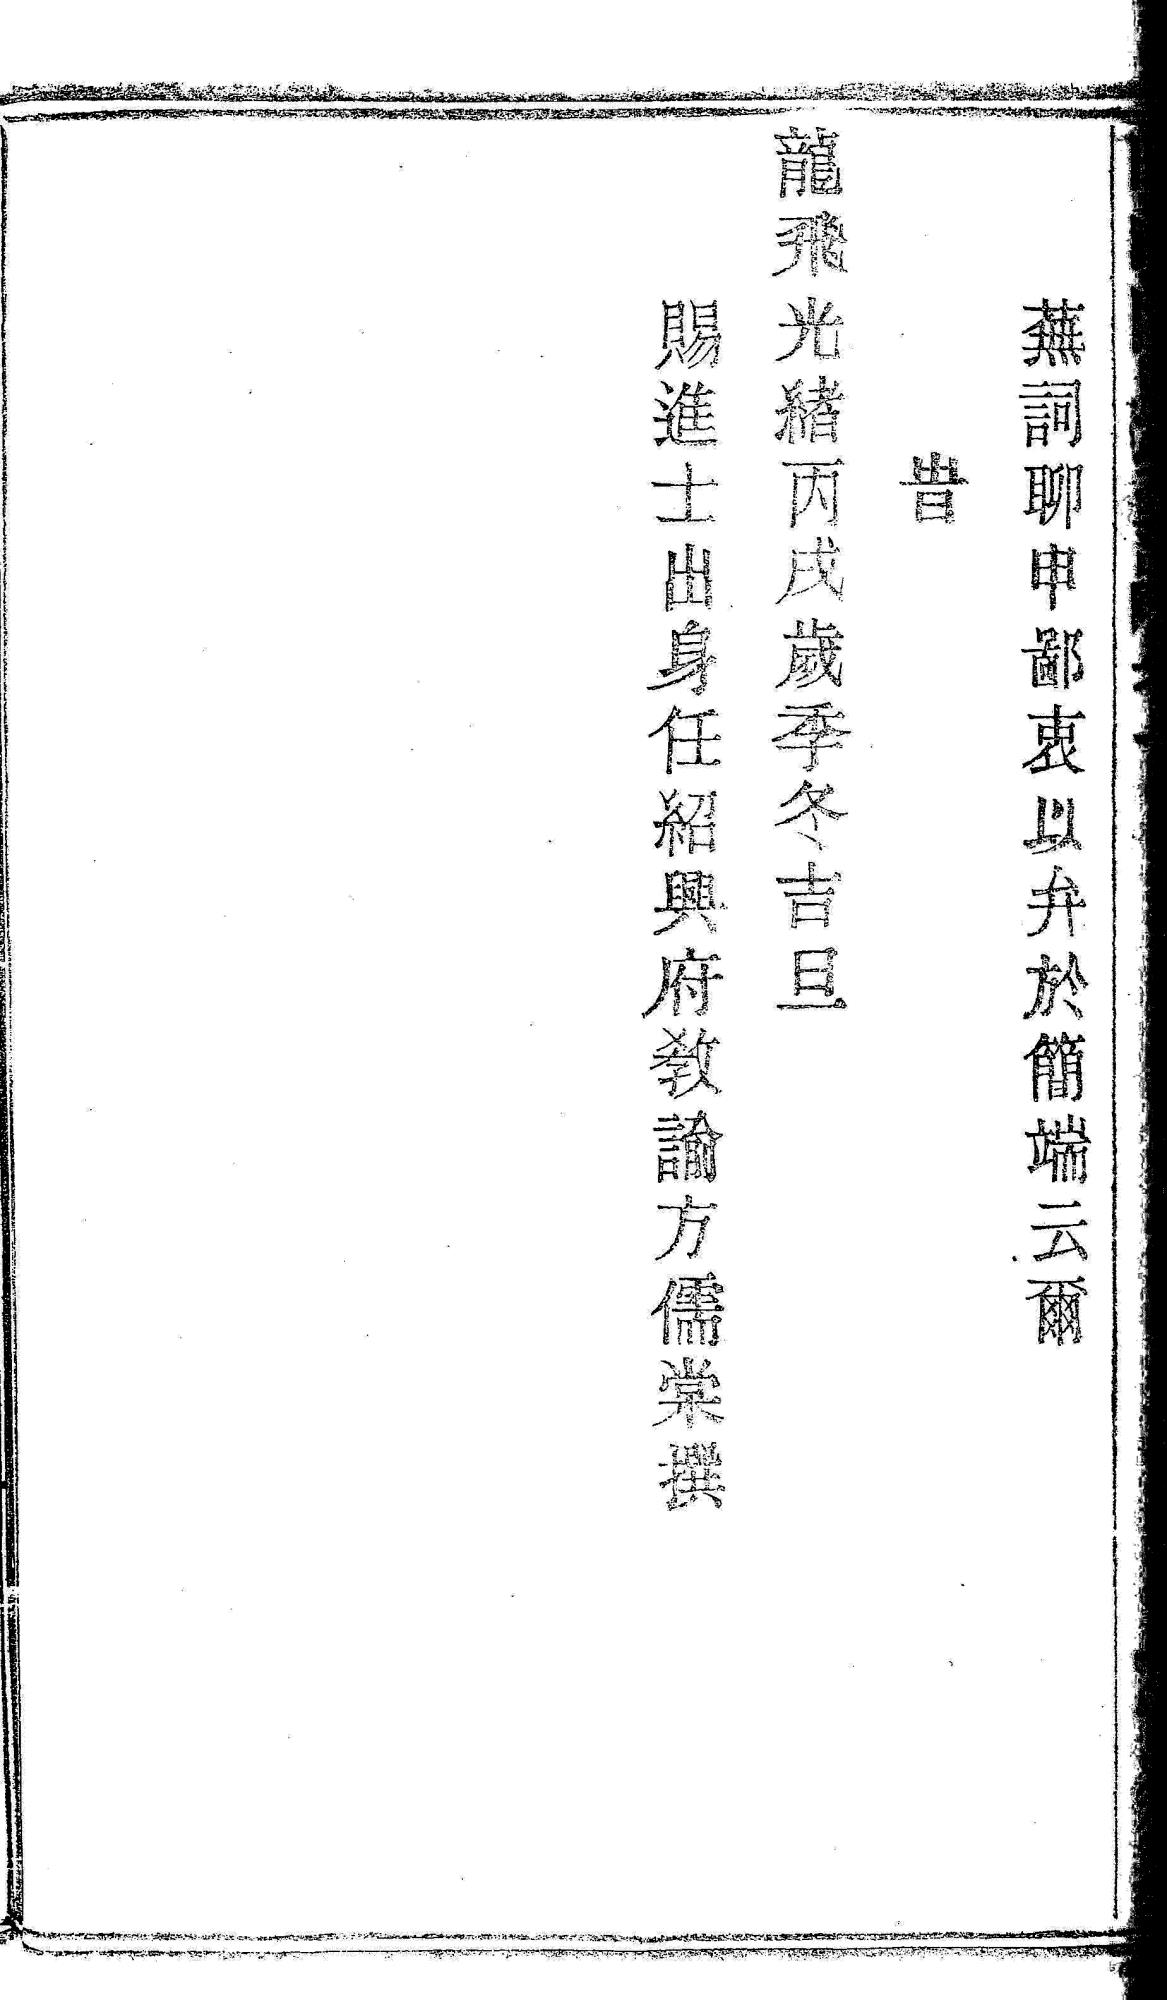 蕪詞聊申鄙衷以弁於簡端云爾
旹
龍飛光緒丙戌歲季冬吉旦
賜進士出身任紹興府教諭方儒棠撰